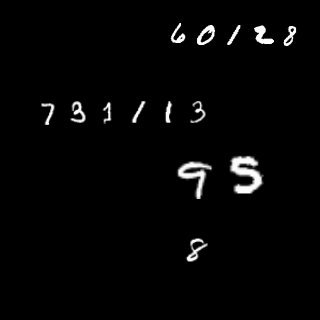 60128
731113
95
8